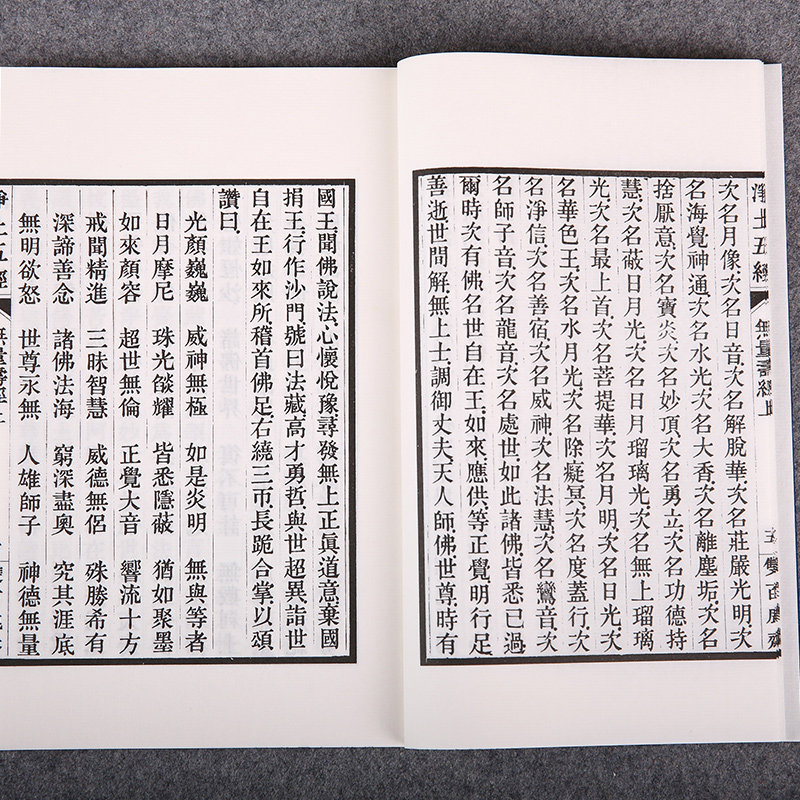 淨土五經 無量壽經上 五
次名月像、次名日音、次名解脫華、次名莊嚴光明、次
名海覺神通、次名水光、次名大香、次名離塵垢、次名
捨厭意、次名寶炎、次名妙頂、次名勇立、次名功德持
慧、次名蔽日月光、次名日月瑠璃光、次名無上瑠璃
光、次名最上首、次名菩提華、次名月明、次名日光、次
名華色王、次名水月光、次名除癡冥、次名度蓋行、次
名淨信、次名善宿、次名威神、次名法慧、次名鸞音、次
名師子音、次名龍音、次名處世、如此諸佛、皆悉已過
爾時次有佛、名世自在王、如來、應供、等正覺、明行足
善逝、世間解、無上士、調御丈夫、天人師、佛、世尊、時有
國王、聞佛說法、心懷悅豫、尋發無上正眞道意、棄國
捐王、行作沙門、號曰法藏、高才勇哲、與世超異、詣世
自在王如來所、稽首佛足、右繞三帀、長跪合掌、以頌
讚曰、
光顏巍巍 威神無極 如是炎明 無與等者
日月摩尼 珠光燄耀 皆悉隱蔽 猶如聚墨
如來顏容 超世無倫 正覺大音 響流十方
戒聞精進 三昧智慧 威德無侶 殊勝希有
深諦善念 諸佛法海 窮深盡奧 究其涯底
無明欲怒 世尊永無 人雄師子 神德無量